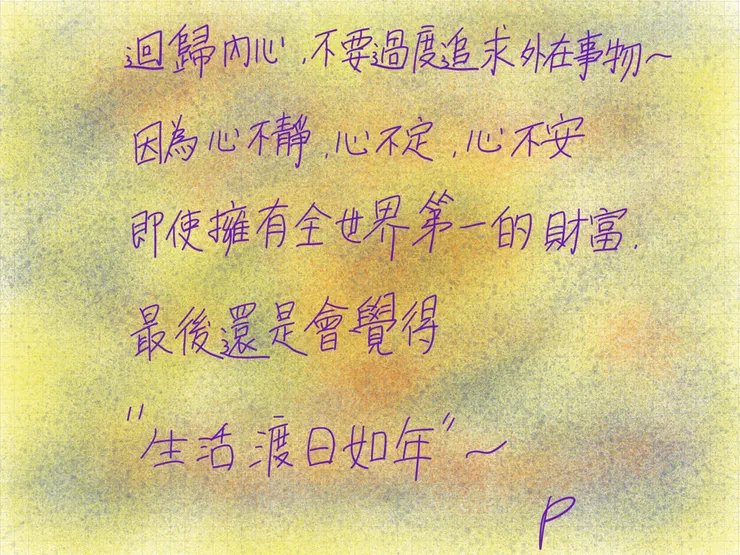 迴歸內心，不要過度追求外在事物～
因為心不靜，心不定，心不安
即使擁有全世界第一的財富．
最後還是會覺得
"生活渡日如年"～
P